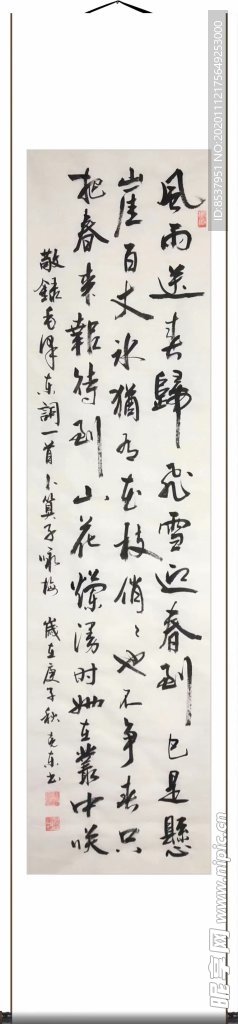 风雨送春归飞雪迎春到已是悬
崖百丈冰犹有花枝俏俏也不争春只
把春来报待到山花烂漫时她在丛中笑
敬录毛泽东词一首卜算子咏梅 岁在庚子秋 书
ID:8537951 NO:20201112175649253000
昵享网 www.nipic.cn